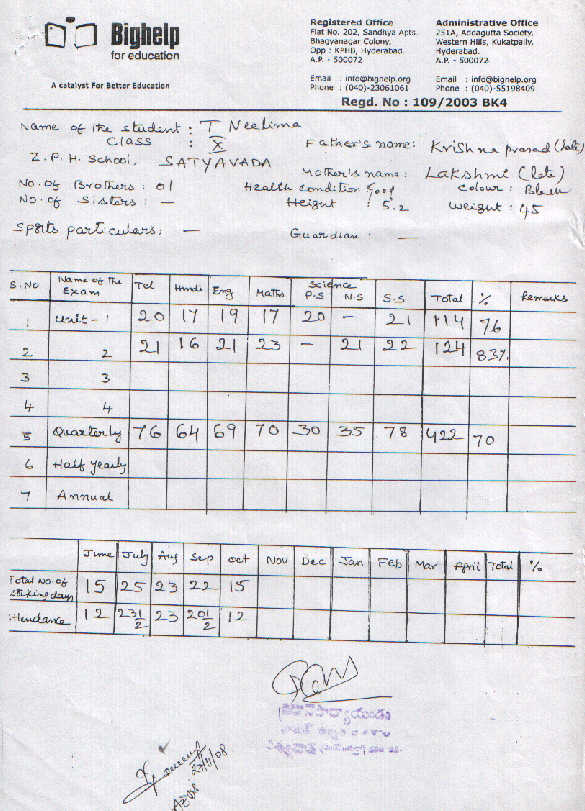 Bighelp
for education
A catalyst For Better Education
Registered Office
Flat No. 202, Sandhya Apts.
Bhagyanagar Colony,
Opp : KPHB, Hyderabad.
A.P. - 500072
Email : info@bighelp.org
Phone : (040)-23061061
Administrative Office
251A, Addagutta Society,
Western Hills, Kukatpally,
Hyderabad.
A.P. - 500072
Email : info@bighelp.org
Phone : (040)-55198409
Regd. No : 109/2003 BK4
Name of the student : T Neelima
Class : X
Father's name: Krishna prasad (late)
Z.P.H. School, SATYAVADA
Mother's name: Lakshmi (late)
No. of Brothers : 01
Health condition Good
Colour :
No. of Sisters : —
Height : 5.2
Weight : 45
Sports particulars: —
Guardian : —
S.No Name of the Exam Tel Hindi Eng Maths Science P.S N.S S.S Total % Remarks
1 Unit - 1 20 17 19 17 20 - 21 114 76
2 2 21 16 21 23 - 21 22 124 83%
3 3
4 4
5 Quarterly 76 64 69 70 30 35 78 422 70
6 Half yearly
7 Annual
June July Aug Sep Oct Nov Dec Jan Feb Mar April Total %
Total No. of working days 15 25 23 22 15
Attendance 12 23 1/2 23 20 1/2 12